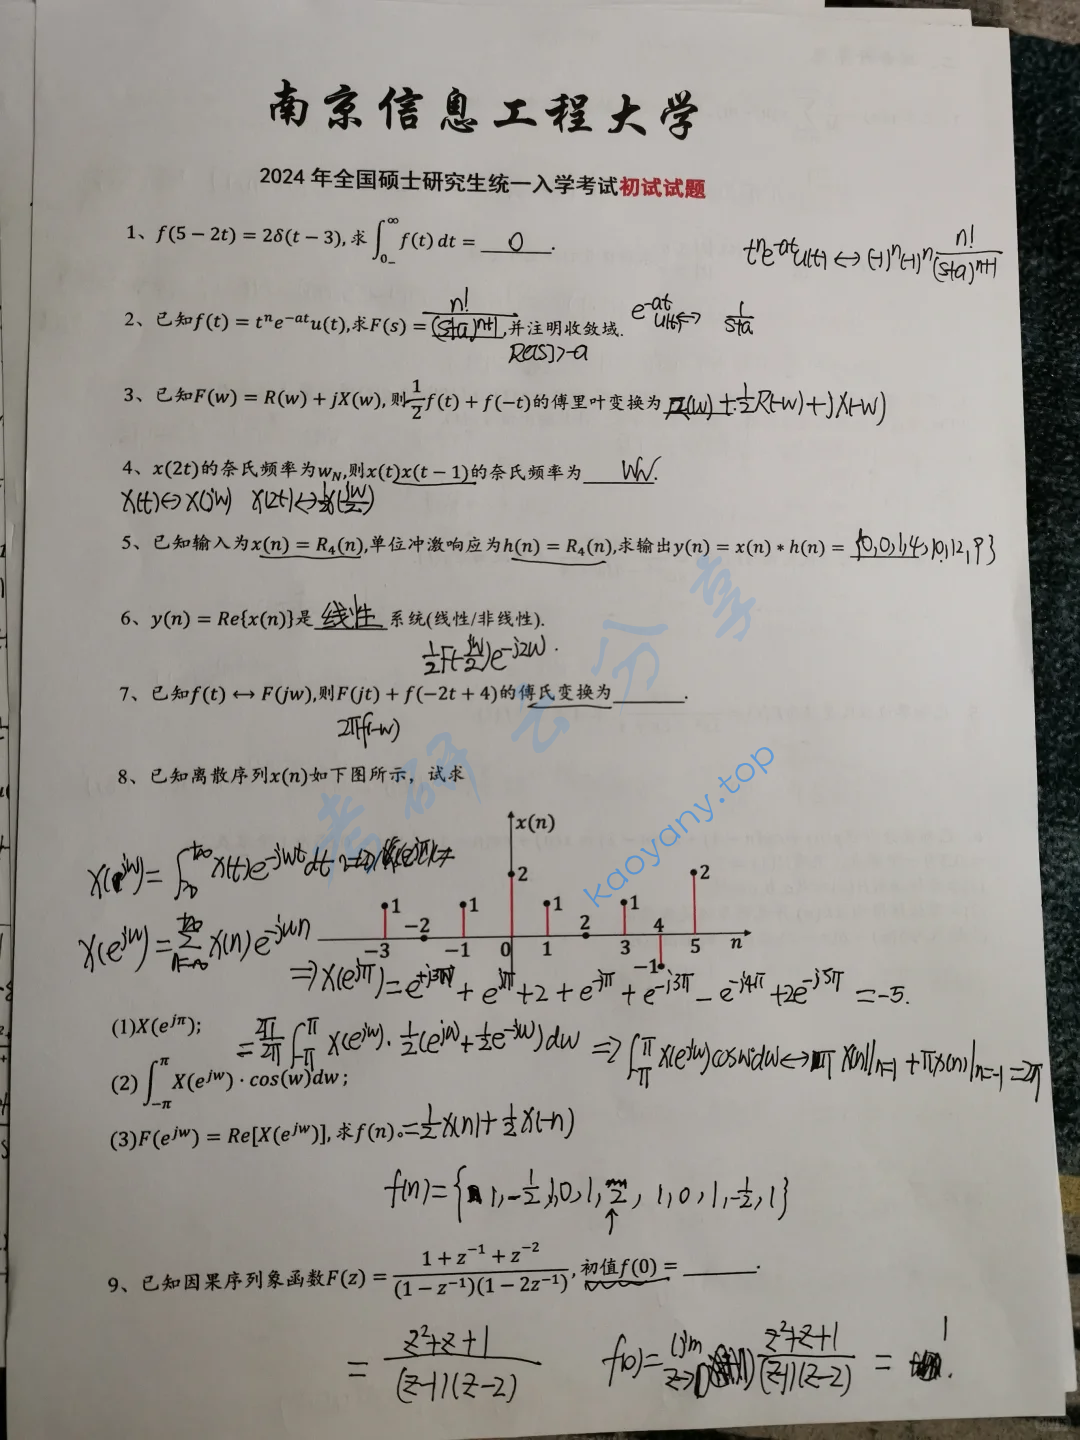 南京信息工程大学
2024 年全国硕士研究生统一入学考试初试试题
1、f(5 − 2t) = 2δ(t − 3), 求 ∫_{0_-}^{∞} f(t) dt = 0 .
tⁿe^{-at}u(t) ↔ (-1)ⁿ(-1)ⁿ n!/(s+a)^{n+1}
2、已知f(t) = tⁿe^{-at}u(t),求F(s) = n!/(s+a)^{n+1},并注明收敛域.
e^{-at}u(t) ↔ 1/(s+a)
Re[s]>-a
3、已知F(w) = R(w) + jX(w), 则 1/2 f(t) + f(−t)的傅里叶变换为 R(-w) + jX(-w)
4、x(2t)的奈氏频率为w_N,则x(t)x(t − 1)的奈氏频率为 W_N.
X(t)↔X(jw) X(2t)↔ 1/2 X(jw/2)
5、已知输入为x(n) = R₄(n),单位冲激响应为h(n) = R₄(n),求输出y(n) = x(n) ∗ h(n) = {0,0,1,4,10,12,9}
6、y(n) = Re{x(n)}是 线性 系统(线性/非线性).
1/2 F(-jw/2)e^{-j2w}
7、已知f(t) ↔ F(jw),则F(jt) + f(−2t + 4)的傅氏变换为 .
2πf(-w)
8、已知离散序列x(n)如下图所示，试求
x(n)
2
2
1
1
1
1
−2
2
4
−3
−1
0
1
3
5
n
−1
X(e^{jw}) = ∫ x(t)e^{-jwt}dt
X(e^{jw}) = Σ x(n)e^{-jwn}
⇒X(e^{jπ}) = e^{+j3π} + e^{jπ} + 2 + e^{-jπ} + e^{-j3π} − e^{-j4π} + 2e^{-j5π} = −5.
(1)X(e^{jπ});
= 2π/2π ∫_{-π}^{π} X(e^{jw})· 1/2(e^{jw} + 1/2 e^{-jw})dw ⇒ ∫_{-π}^{π} X(e^{jw})coswdw ↔ π X(n)|_{n=1} + πx(n)|_{n=-1} = 2π
(2) ∫_{−π}^{π} X(e^{jw}) · cos(w)dw ;
(3)F(e^{jw}) = Re[X(e^{jw})], 求f(n)。= 1/2 X(n) + 1/2 X(-n)
f(n) = { 1, -1/2, 1, 0, 1, 2, 1, 0, 1, -1/2, 1}
↑
9、已知因果序列象函数F(z) = (1 + z^{−1} + z^{−2})/((1 − z^{−1})(1 − 2z^{−1})), 初值f(0) = .
= (z²+z+1)/((z-1)(z-2))
f(0) = lim (z²+z+1)/((z-1)(z-2)) = 1 .
考研云分享
kaoyany.top